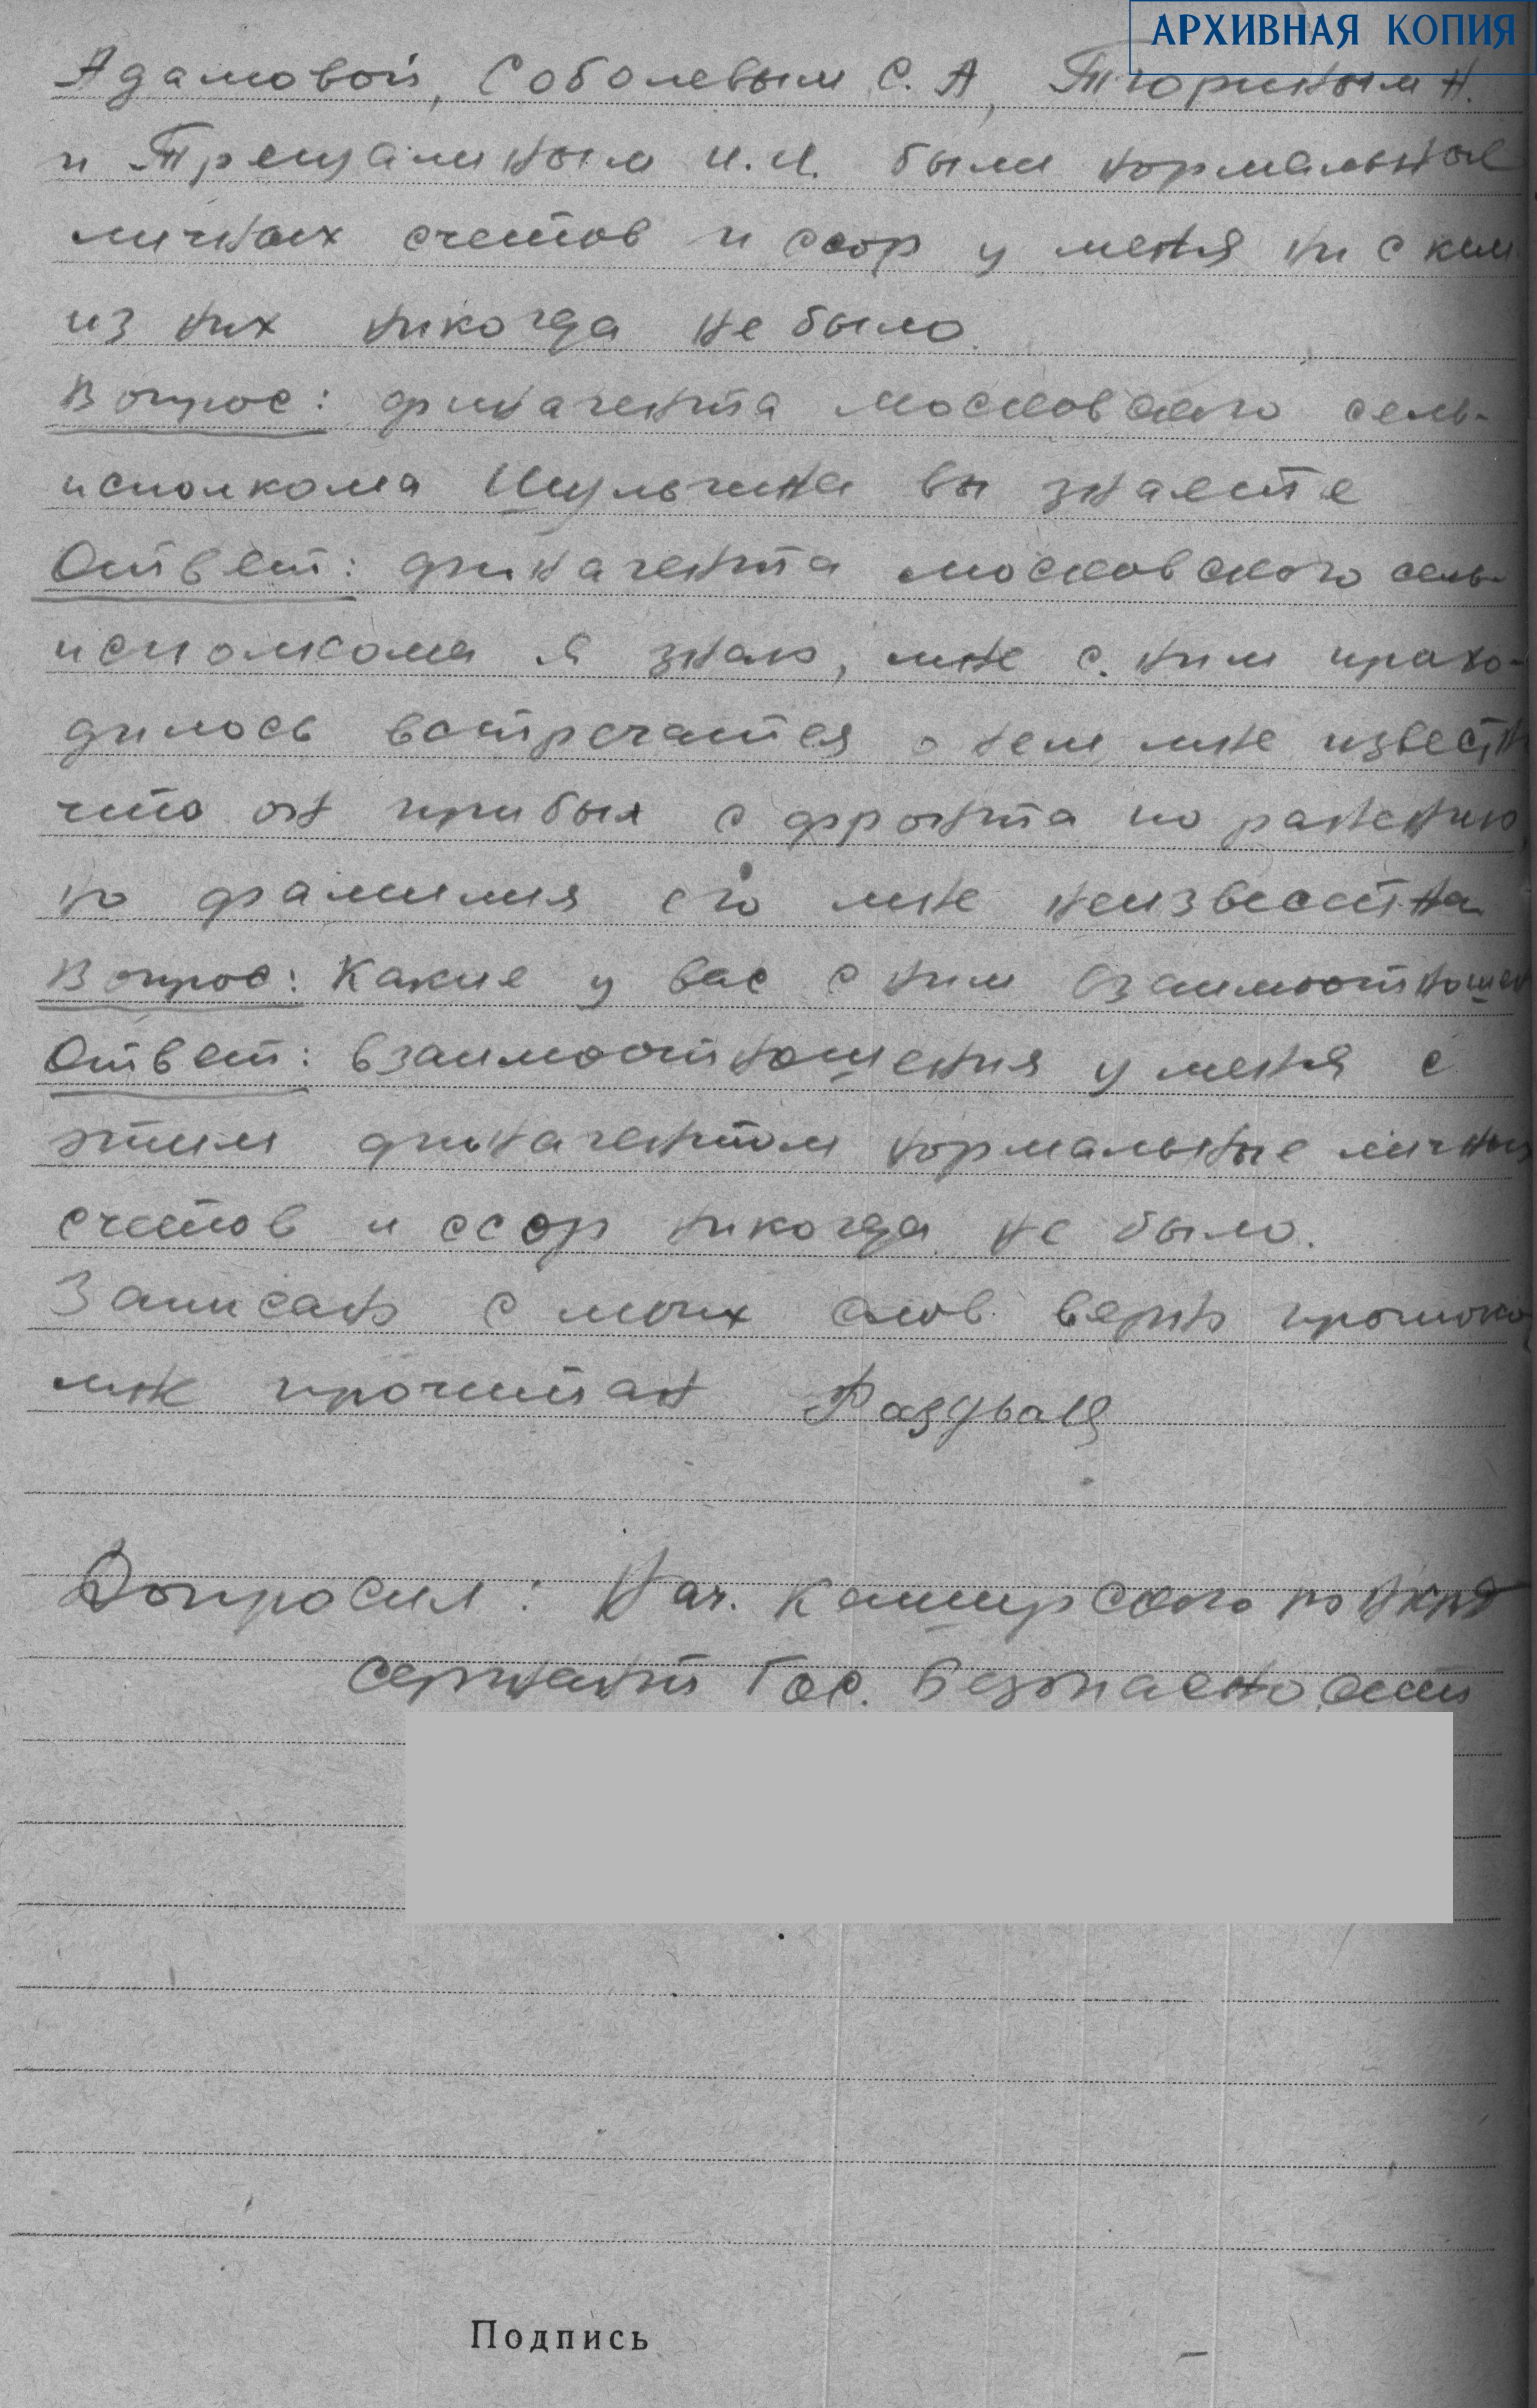 АРХИВНАЯ КОПИЯ
Адамовой, Соболевым С. А, Тюриным Н.
и Трещалиным И.И. были нормальные
личных счетов и ссор у меня ни с кем
из них никогда не было.
Вопрос: финагента московского сель-
исполкома Шульгина вы знаете
Ответ: финагента московского сель-
исполкома я знаю, мне с ним прихо-
дилось встречатся о нем мне извест
что он прибыл с фронта по ранению
но фамилия его мне неизвесстна
Вопрос: Какие у вас с ним взаимоотношен
Ответ: взаимоотношения у меня с
этим финагентом нормальные личных
счетов и ссор никогда не было.
Записано с моих слов верно протокол
мне прочитан
Допросил: Нач. Каширского ро НКВД
сержант Гос. Безопасности
Подпись